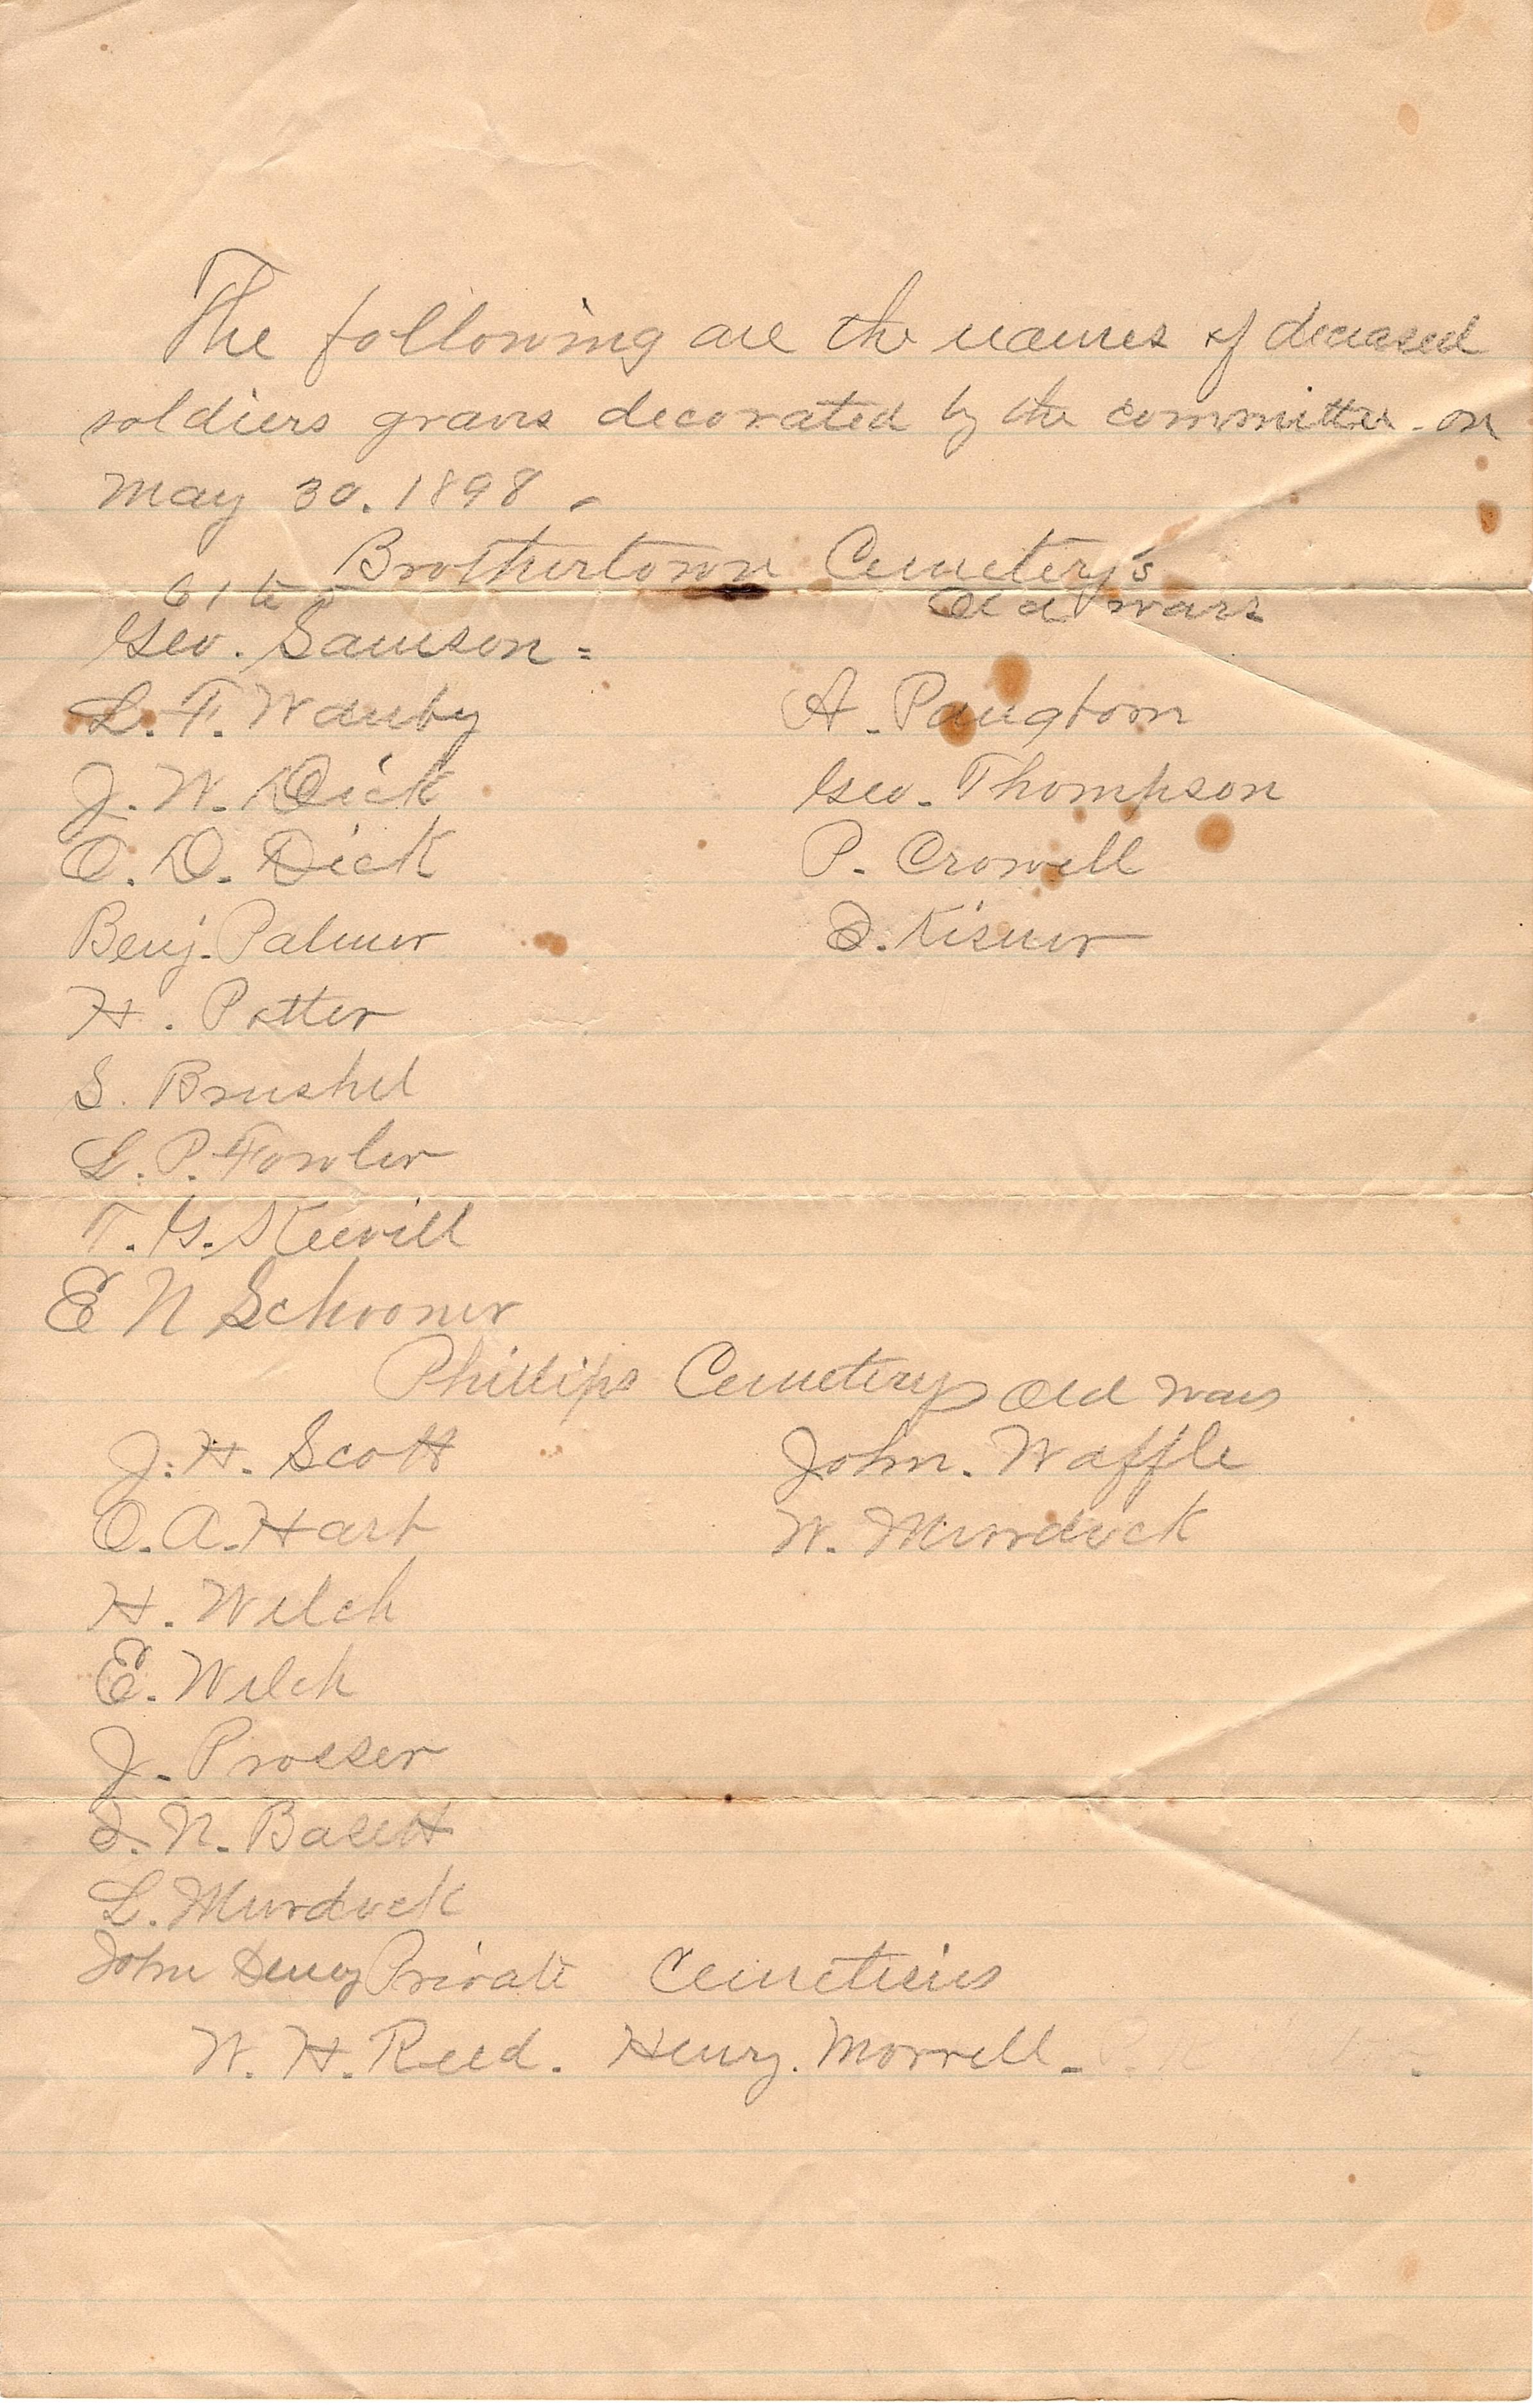 The following are the names of deceased
soldiers graves decorated by the committee on
May 30. 1898.
Brothertown Cemetery's
61 to 5
Old wars
Geo. Samson =
L. F. Wauby
A. Paugborn
J. W. Dick
Geo. Thompson
O. D. Dick
P. Crowell
Benj. Palmer
D. Kisner
H. Potter
S. Brushel
L. P. Fowler
T. G.
E N Schooner
Phillips Cemetery Old wars
J. H. Scott
John. Waffle
O. A. Hart
W. Murdock
H. Welch
E. Welch
J. Prosser
I. N. Basett
L. Murdock
John Denny Private Cemeteries
W. H. Reed. Henry. Morrell.